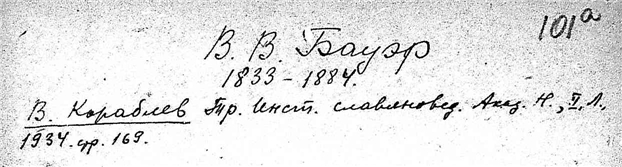 101а
В. В. Бауэр
1833 – 1884.
В. Кораблев Тр. Инст. славяновед. Акад. Н., I, Л.,
1934. стр. 169.